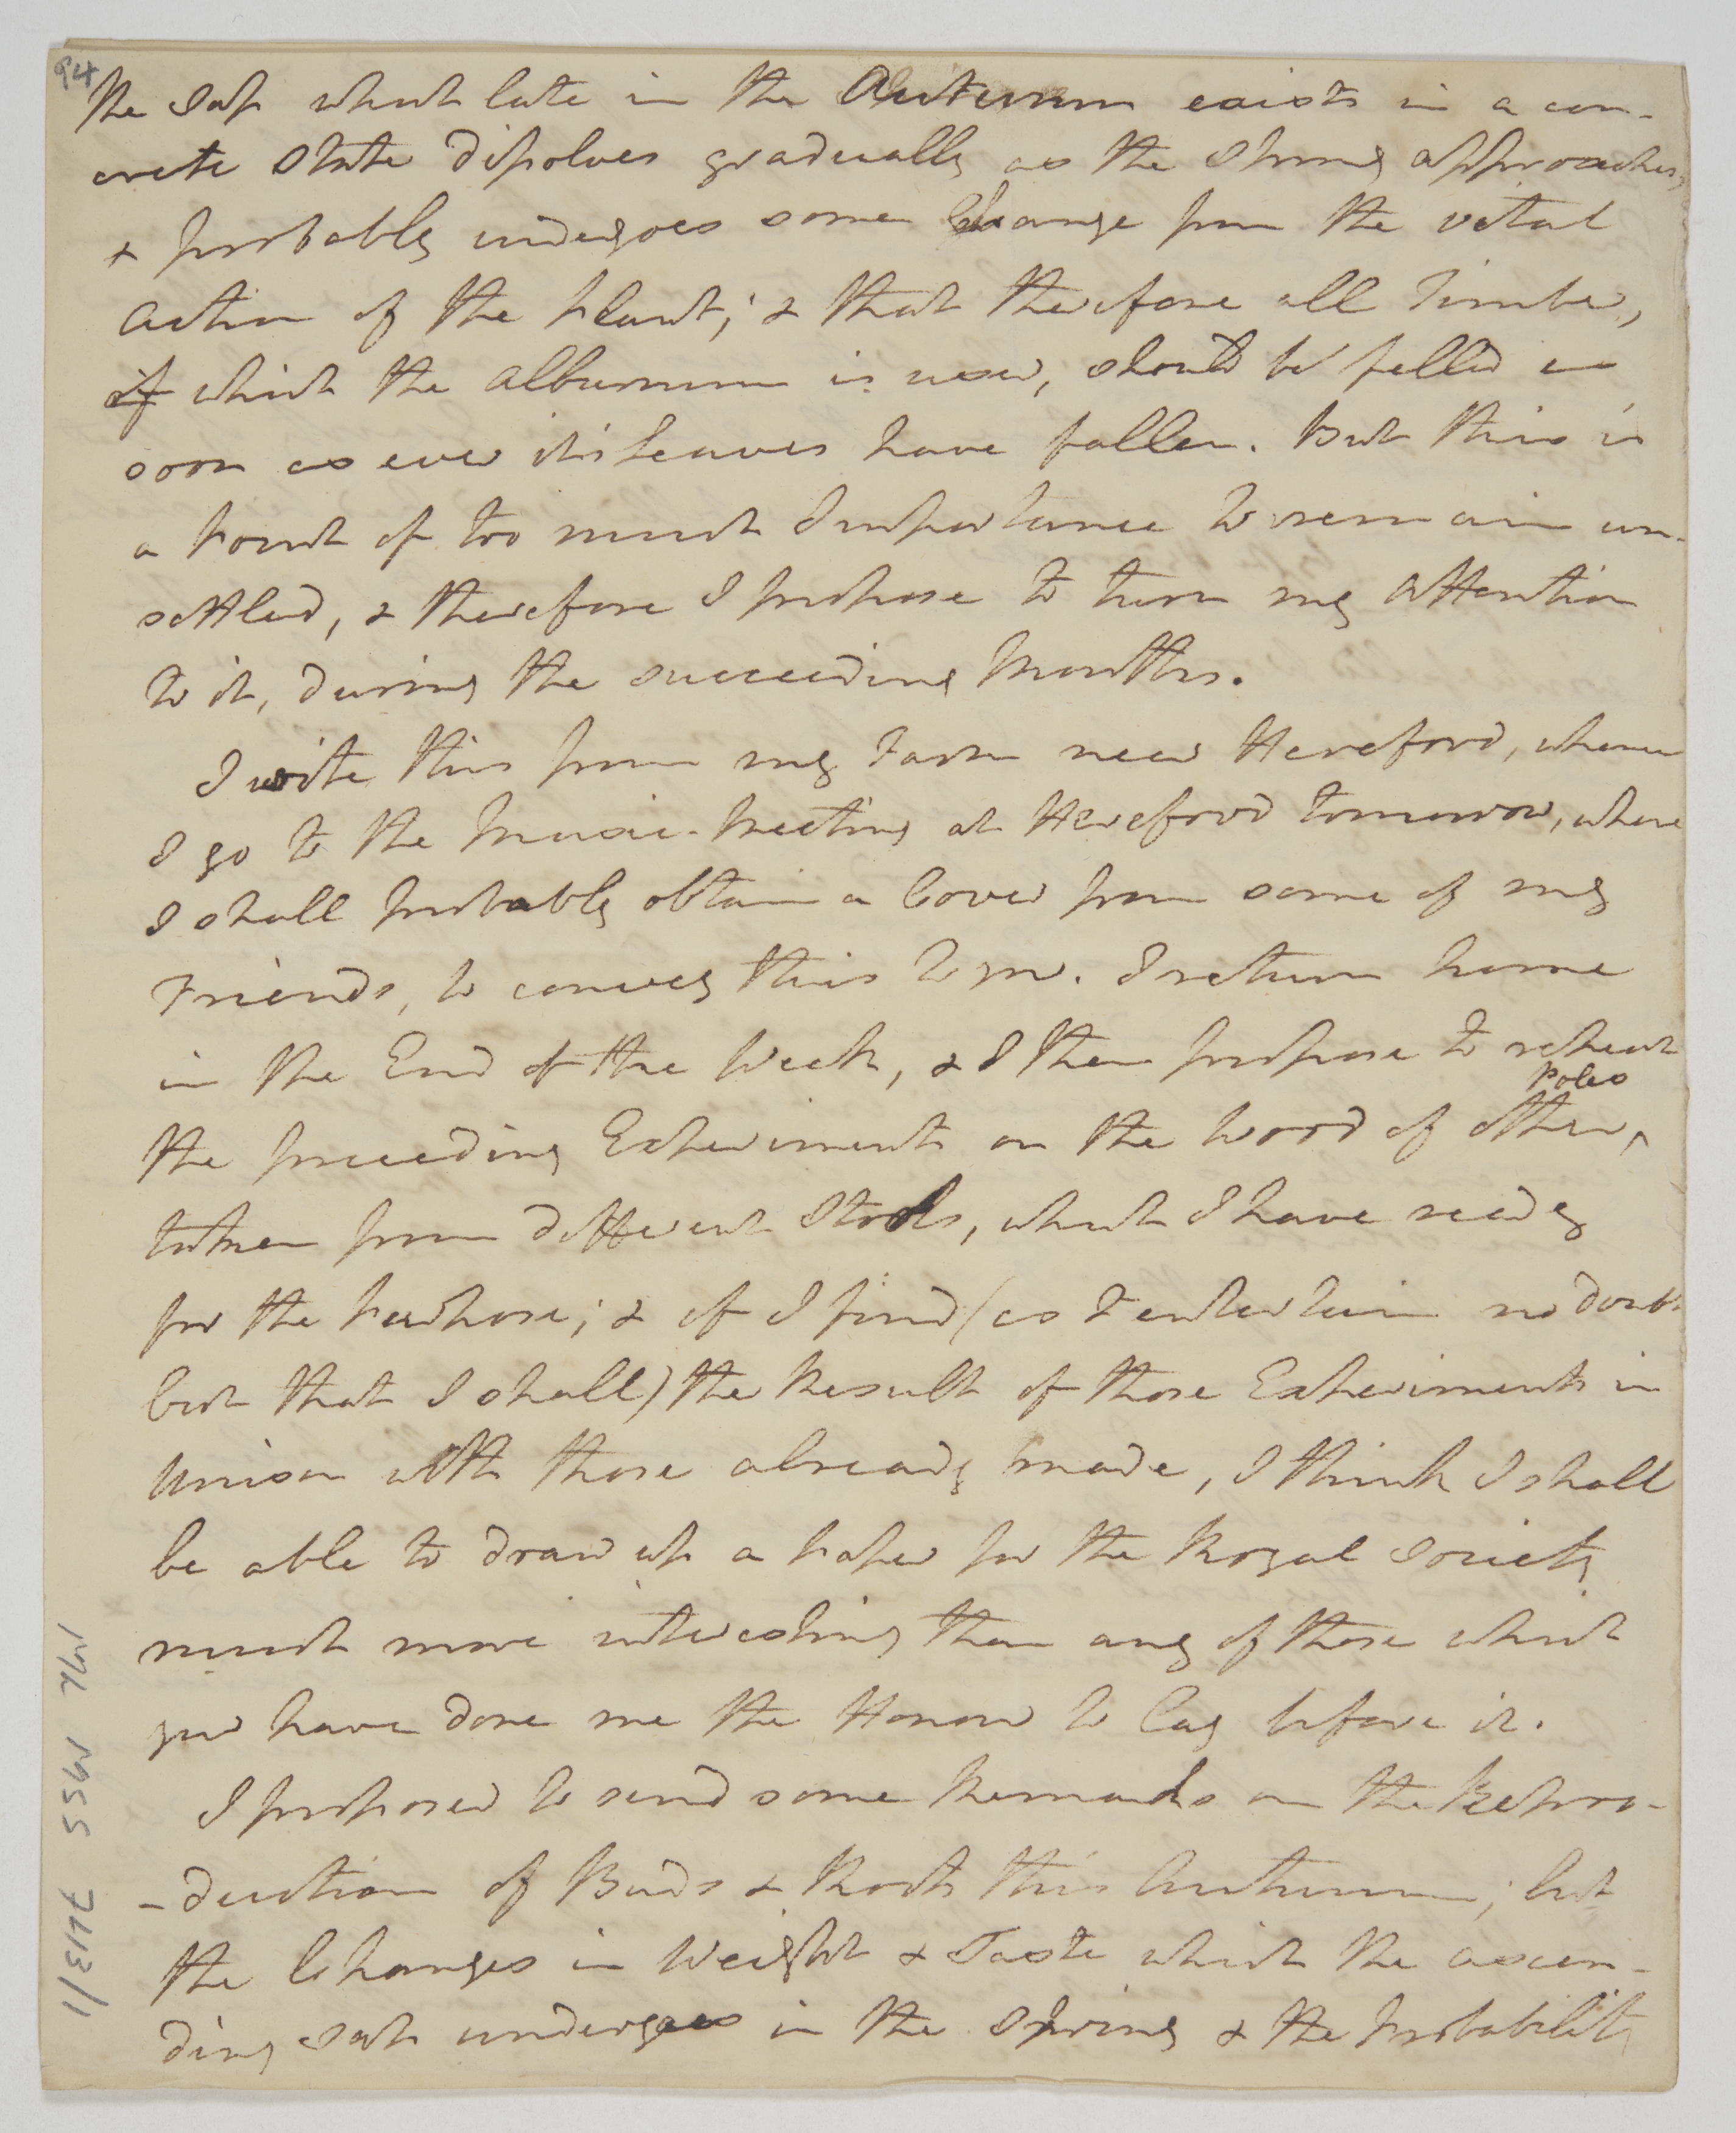 94
the Sap which late in the Autumn exists in a con-
crete State dissolves gradually as the Spring approaches,
& probably undergoes some Change from the vital
action of the Plant; & that therefore all Timber,
of which the alburnum is used, should be felled as
soon as ever its Leaves have fallen. But this is
a Point of too much Importance to remain un-
settled, & therefore I propose to turn my Attention
to it, during the succeeding Months.
I write this from my Farm near Hereford, whence
I go to the Music-Meeting at Hereford tomorrow, where
I shall probably obtain a Cover from some of my
Friends, to convey this to you. I return home
in the End of the Week, & I then propose to repeat
Poles
the preceeding Experiments on the Wood of other,
taken from different Stools, which I have ready
for the Purpose; & if I find (as I entertain no doubt
but that I shall) the Result of those Experiments in
Unison with those already made, I think I shall
be able to draw up a Paper for the Royal Society
much more interesting than any of those which
you have done me the Honour to lay before it.
I proposed to send some Remarks on the Repro-
-duction of Buds & Roots this Autumn; but
the Changes in Weight & Taste which the ascen-
ding Sap undergoes in the Spring & the Probability